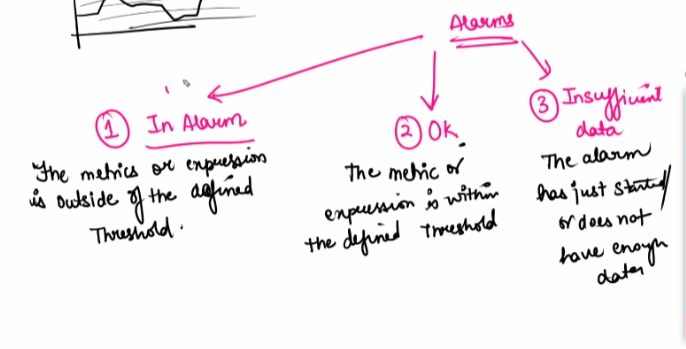 Alarms
① In Alarm
The metrics or expression
is outside of the defined
Threshold.
② OK
The metric or
expression is within
the defined Threshold
③ Insufficient
data
The alarm
has just started
or does not
have enough
data